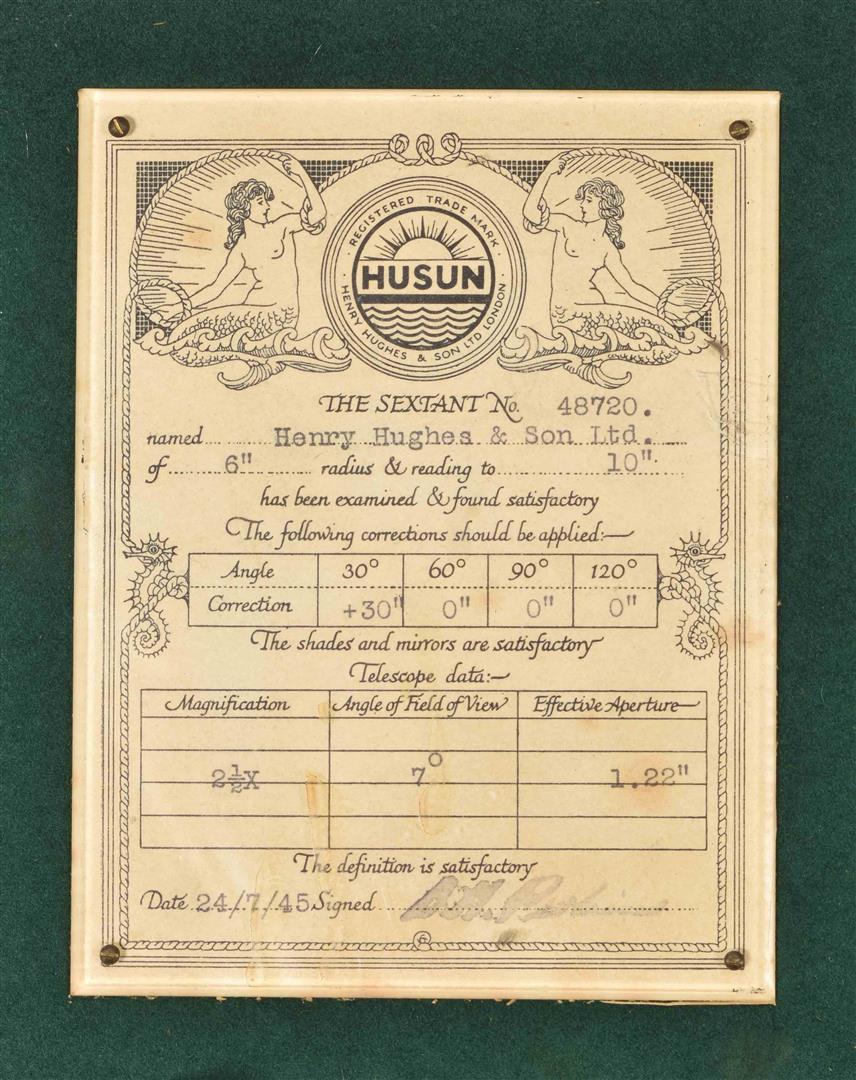 REGISTERED TRADE MARK
HUSUN
HENRY HUGHES & SON LTD LONDON
THE SEXTANT No. 48720.
named Henry Hughes & Son Ltd.
of 6" radius & reading to 10".
has been examined & found satisfactory
The following corrections should be applied:—
Angle 30° 60° 90° 120°
Correction +30" 0" 0" 0"
The shades and mirrors are satisfactory
Telescope data:—
Magnification Angle of Field of View Effective Aperture
2½X 7° 1.22"
The definition is satisfactory
Date 24/7/45 Signed
6